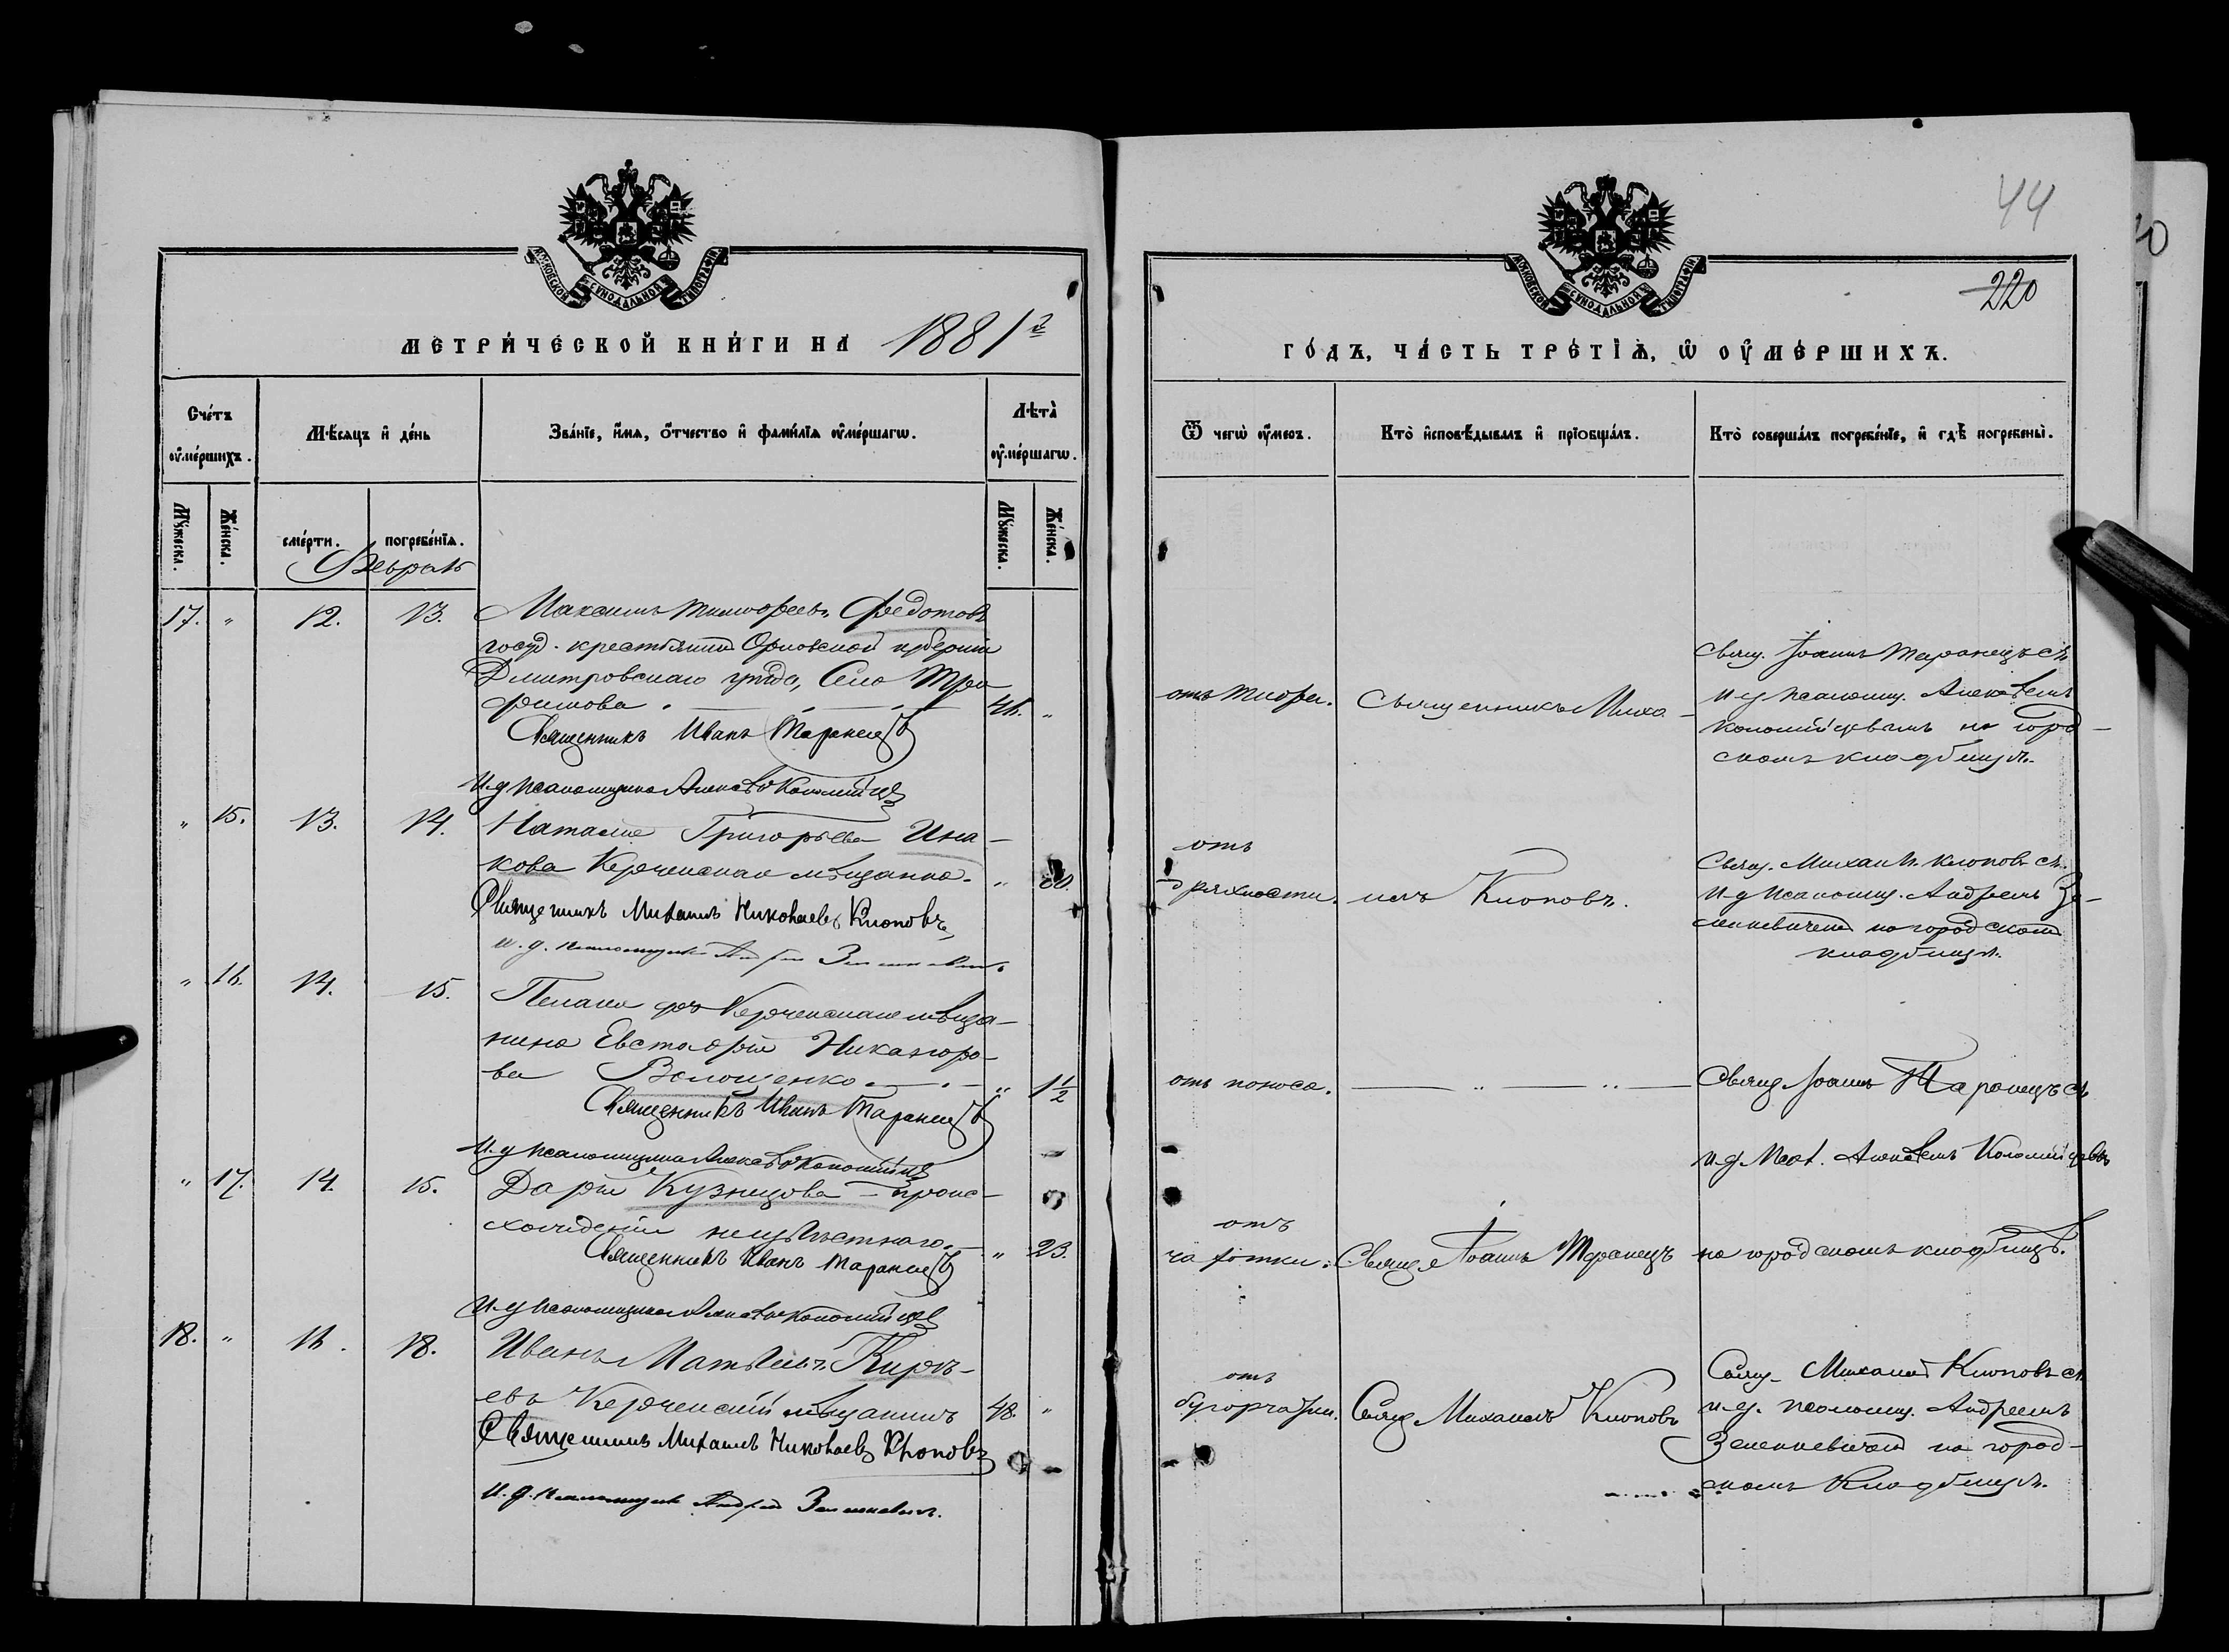 44
220
МОСКОВСКОЙ СѴНОДАЛЬНОЙ ТИПОГРАФІИ
МЕТРИ́ЧЕСКОЙ КНИ́ГИ НА 1881 г
Сче́тъ ᲂу҆ме́ршихъ.
Мѣ́сѧцъ и҆ де́нь
Зва́нїе, и҆́мѧ, ѻ҆́тчество и҆ фами́лїѧ ᲂу҆ме́ршагѡ.
Лѣта̀ ᲂу҆ме́ршагѡ.
Мꙋ́жеска.
Же́нска.
сме́рти.
погребе́нїѧ.
Мꙋ́жеска.
Же́нска.
Февраль
17. " 12. 13. Максимъ Тимофеевъ Федотовъ
госуд. крестьянинъ Орловской губерніи
Дмитровскаго уѣзда, Села Тро
фимова. 46. "
Священникъ Иванъ Таранецъ
И.д псаломщика Алексѣй Коломійцевъ
" 15. 13. 14. Наталія Григорьева Иса-
кова Керченская мѣщанка. " 80.
Священникъ Михаилъ Николаевъ Клоповъ
и.д. псаломщика Андрей Зеленкевичъ
" 16. 14. 15. Пелагія дочь Керченскаго мѣща-
нина Евстафія Никаноро-
ва Волошенко " 1½
Священникъ Иванъ Таранецъ
И.д псаломщика Алексѣй Коломійцевъ
" 17. 14. 15. Дарія Кузнецова - проис-
хожденія неизвѣстнаго. " 23.
Священникъ Иванъ Таранецъ
И.д псаломщика Алексѣй Коломійцевъ
18. " 16. 18. Иванъ Матвѣевъ Кирѣ-
евъ Керченскій мѣщанинъ 48. "
Священникъ Михаилъ Николаевъ Клоповъ
и.д. псаломщика Андрей Зеленкевичъ.
МОСКОВСКОЙ СѴНОДАЛЬНОЙ ТИПОГРАФІИ
ГО́ДЪ, ЧА́СТЬ ТРЕ́ТЇѦ, Ѡ҆ ОУ҆МЕ́РШИХЪ.
Ѿ чегѡ̀ ᲂу҆́меръ.
Кто̀ и҆сповѣ́дывалъ и҆ прїѡбща́лъ.
Кто̀ соверша́лъ погребе́нїе, и҆ гдѣ̀ погребены̀.
отъ тифа. Священникъ Миха-
Свящ. Іоаннъ Таранецъ съ
и.д псаломщ. Алексѣемъ
Коломійцевымъ на город-
скомъ кладбищѣ.
отъ
дряхлости. илъ Клоповъ.
Свящ. Михаилъ Клоповъ съ
и.д псаломщ. Андреемъ Зе-
ленкевичемъ на городскомъ
кладбищѣ.
отъ поноса.
Свящ Іоаннъ Таранецъ съ
и.д. Псал. Алексѣемъ Коломійцевымъ
отъ
чахотки. Свящ Іоаннъ Таранецъ на городскомъ кладбищѣ.
отъ
бугорчатки. Свящ Михаилъ Клоповъ
Свящ. Михаилъ Клоповъ съ
и.д. псаломщ. Андреемъ
Зеленкевичемъ на город-
скомъ Кладбищѣ.